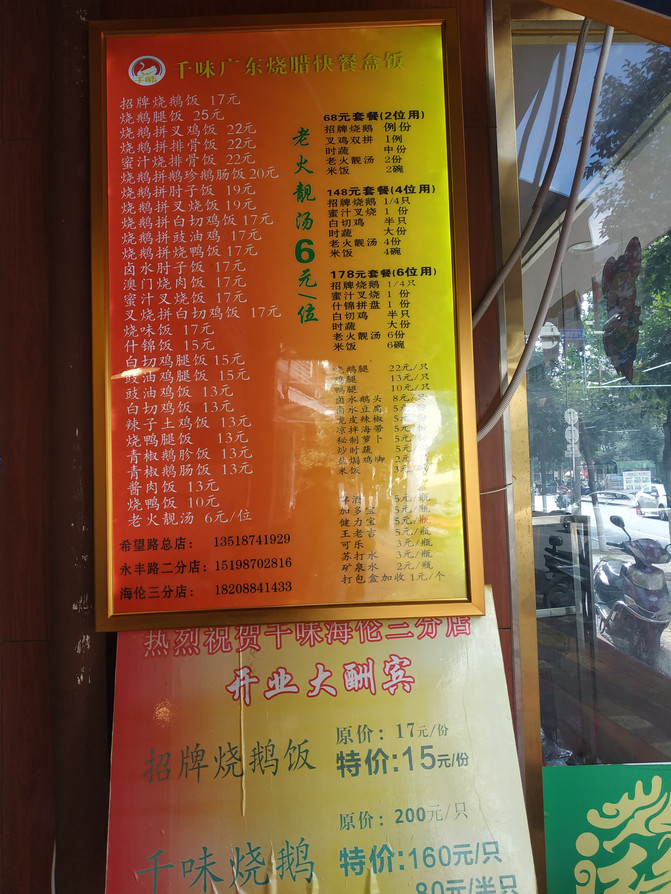 千味广东烧腊快餐盒饭
招牌烧鹅饭 17元
烧鹅腿饭 25元
烧鹅拼叉鸡饭 22元
烧鹅拼排骨饭 22元
蜜汁烧排骨饭 22元
烧鹅拼鹅珍鹅肠饭 20元
烧鹅拼肘子饭 19元
烧鹅拼叉烧饭 19元
烧鹅拼白切鸡饭 17元
烧鹅拼豉油鸡 17元
烧鹅拼烧鸭饭 17元
卤水肘子饭 17元
澳门烧肉饭 17元
蜜汁叉烧饭 17元
叉烧拼白切鸡饭 17元
烧味饭 17元
什锦饭 15元
白切鸡腿饭 15元
豉油鸡腿饭 15元
豉油鸡饭 13元
白切鸡饭 13元
辣子土鸡饭 13元
烧鸭腿饭 13元
青椒鹅胗饭 13元
青椒鹅肠饭 13元
酱肉饭 13元
烧鸭饭 10元
老火靓汤 6元/位
老火靓汤6元/位
68元套餐(2位用)
招牌烧鹅 例份
叉鸡双拼 1例
时蔬 中份
老火靓汤 2份
米饭 2碗
148元套餐(4位用)
招牌烧鹅 1/4只
蜜汁叉烧 1 份
白切鸡 半只
时蔬 大份
老火靓汤 4份
米饭 4碗
178元套餐(6位用)
招牌烧鹅 1/4只
蜜汁叉烧 1 份
什锦拼盘 1 份
白切鸡 半只
时蔬 大份
老火靓汤 6份
米饭 6碗
烧鹅腿 22元/只
鸡腿 13元/只
鸭腿 10元/只
卤水鹅头 8元/只
卤水豆腐 5元/份
虎皮辣椒 5元/份
凉拌海带 5元/份
秘制萝卜 5元/份
炒时蔬 5元/份
盐焗鸡脚 2元/只
米饭 3元/
啤酒 5元/瓶
加多宝 5元/瓶
健力宝 5元/瓶
王老吉 5元/瓶
可乐 3元/瓶
苏打水 3元/瓶
矿泉水 2元/瓶
打包盒加收 1元/个
希望路总店: 13518741929
永丰路二分店: 15198702816
海伦三分店: 18208841433
热烈祝贺千味海伦三分店
开业大酬宾
招牌烧鹅饭
原价: 17元/份
特价:15元/份
千味烧鹅
原价: 200元/只
特价:160元/只
80元/半只